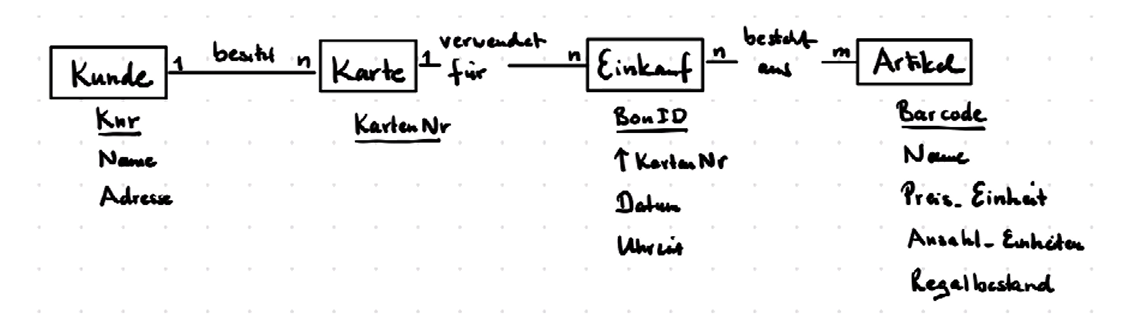 Kunde 1 besitzt n Karte 1 verwendet für n Einkauf n besteht aus m Artikel
Knr
Name
Adresse
KartenNr
BonID
↑ KartenNr
Datum
Uhrzeit
Barcode
Name
Preis_Einheit
Anzahl_Einheiten
Regalbestand